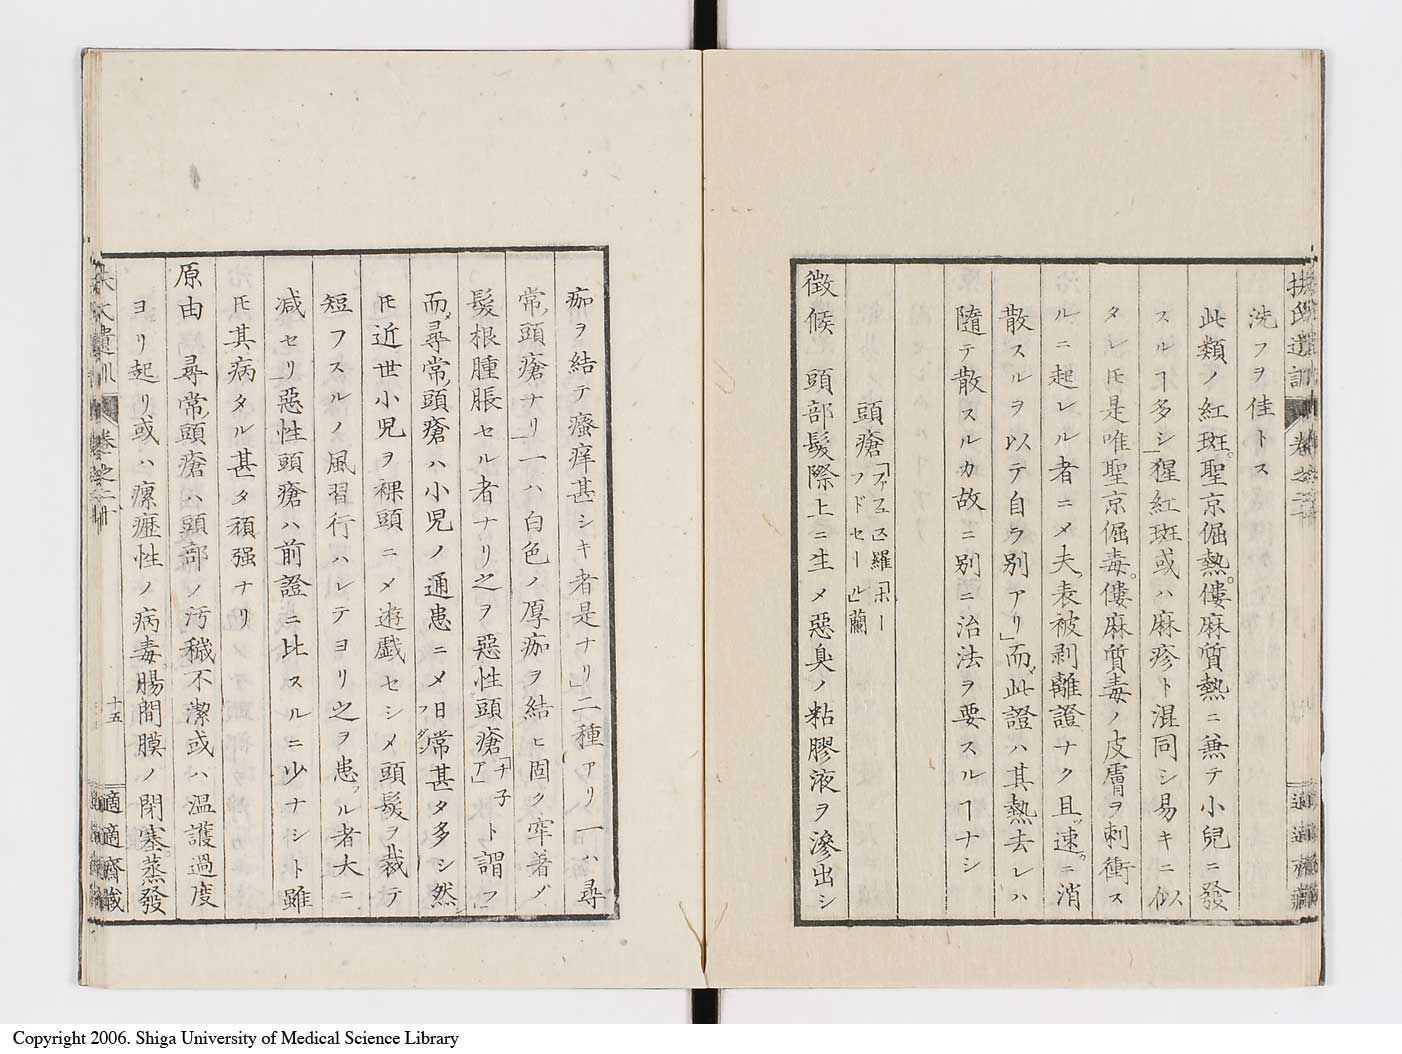 洗フヲ佳トス
此類ノ紅斑。聖京倔熱。僂麻質熱ニ兼テ小兒ニ發
スルヿ多シ」猩紅斑或ハ麻疹ト混同シ易キニ似
タレ𪜈是唯聖京倔毒。僂麻質毒ノ皮膚ヲ刺衝ス
ルニ起レル者ニメ夫表被剥離證ナク且速ニ消
散スルヲ以テ自ラ別アリ」而此證ハ其熱去レハ
隨テ散スルカ故ニ別ニ治法ヲ要スルヿナシ
頭瘡
フドセール」蘭
徴候 頭部髮際上ニ生メ惡臭ノ粘膠液ヲ滲出シ
痂ヲ結テ瘙痒甚シキ者是ナリ」二種アリ一ハ尋
常頭瘡ナリ」一ハ白色ノ厚痂ヲ結ヒ固ク牢著メ
髮根腫脹セル者ナリ之ヲ惡性頭瘡ト謂フ
而尋常頭瘡ハ小兒ノ通患ニメ日常甚タ多シ然
𪜈近世小児ヲ裸頭ニメ遊戯セシメ頭髮ヲ裁テ
短フスルノ風習行ハレテヨリ之ヲ患ル者大ニ
減セリ」惡性頭瘡ハ前證ニ比スルニ少ナシト雖
𪜈其病タル甚タ頑强ナリ
原由 尋常頭瘡ハ頭部ノ汚穢不潔或ハ温護過度
ヨリ起リ或ハ瘰癧性ノ病毒。腸間膜ノ閉塞。蒸發
遺訓 卷之二
十五
適適齋藏